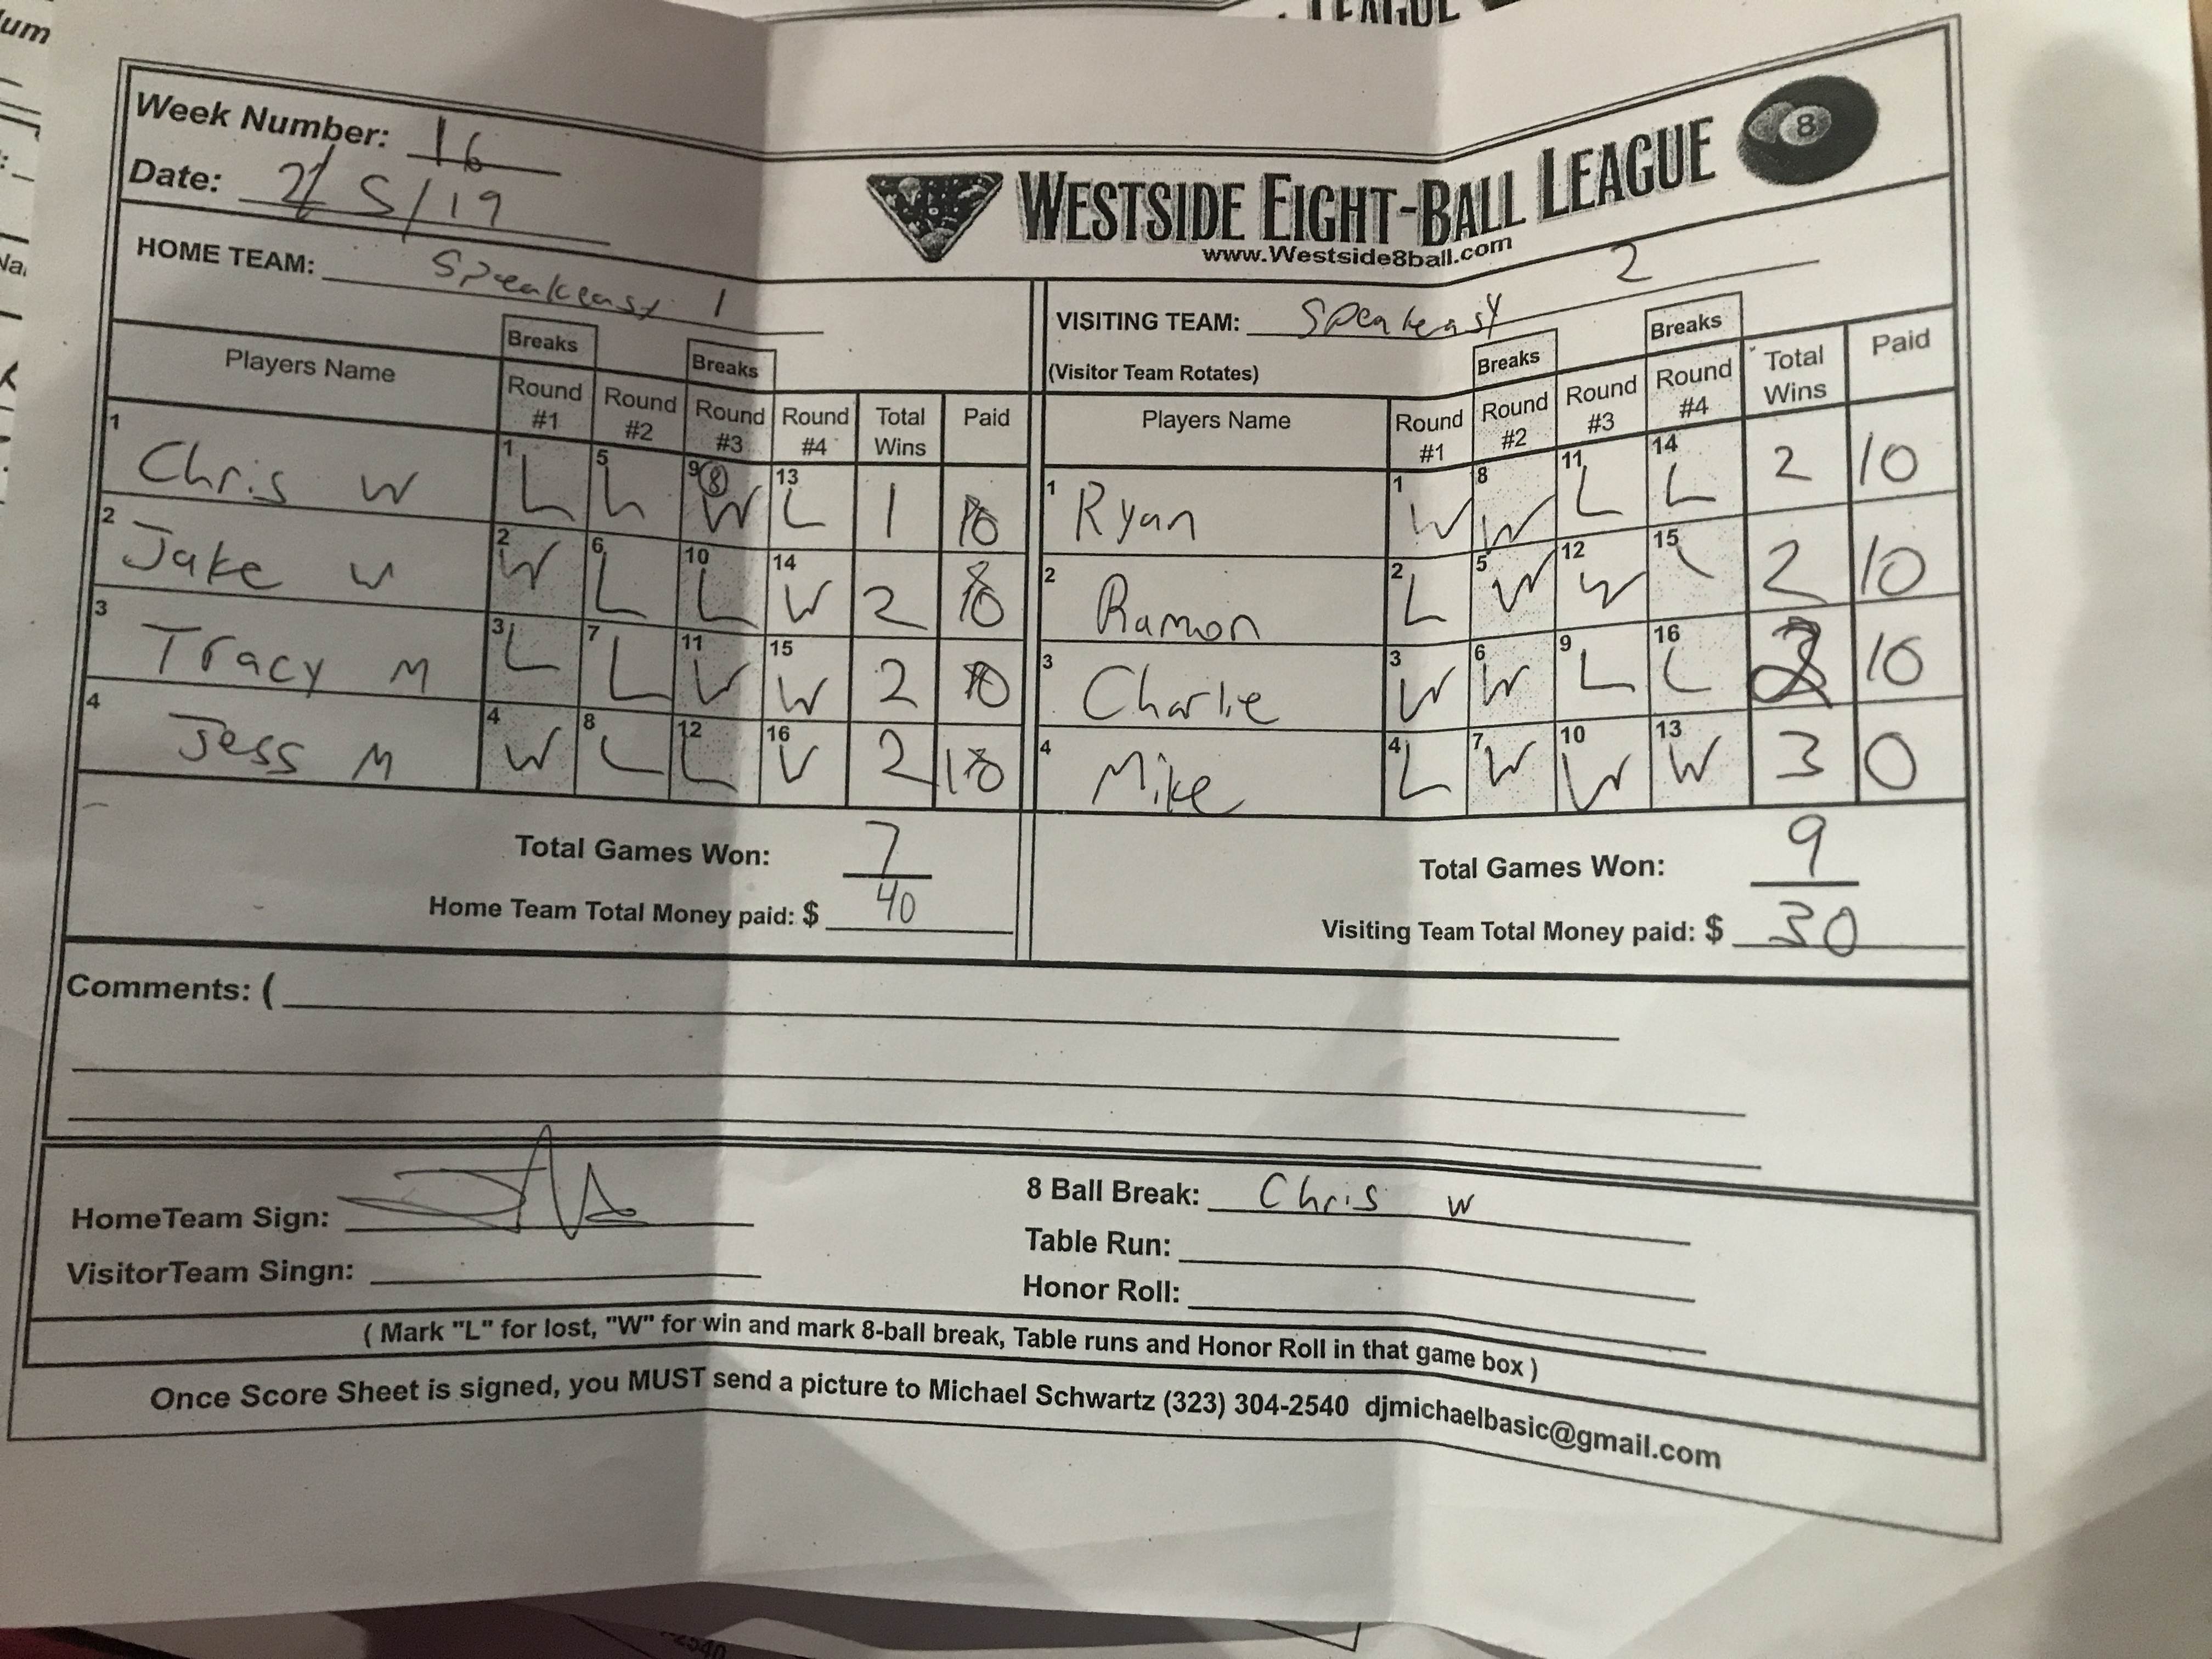 LEAGUE
um
Week Number: 16
Date: 2/5/19
WESTSIDE EIGHT-BALL LEAGUE 8
www.Westside8ball.com
HOME TEAM: Speakeasy 1
VISITING TEAM: Speakeasy 2
(Visitor Team Rotates)
Breaks Breaks
Players Name Round #1 Round #2 Round #3 Round #4 Total Wins Paid
1 Chris W 1 L 5 L 9 8 W 13 L 1 10
2 Jake W 2 W 6 L 10 L 14 W 2 10
3 Tracy M 3 L 7 L 11 W 15 W 2 10
4 Jess M 4 W 8 L 12 L 16 W 2 10
Total Games Won: 7
Home Team Total Money paid: $ 40
Breaks Breaks
Players Name Round #1 Round #2 Round #3 Round #4 Total Wins Paid
1 Ryan 1 W 8 W 11 L 14 L 2 10
2 Ramon 2 L 5 W 12 W 15 L 2 10
3 Charlie 3 W 6 W 9 L 16 L 2 10
4 Mike 4 L 7 W 10 W 13 W 3 0
Total Games Won: 9
Visiting Team Total Money paid: $ 30
Comments: (
HomeTeam Sign:
VisitorTeam Singn:
8 Ball Break: Chris W
Table Run:
Honor Roll:
( Mark "L" for lost, "W" for win and mark 8-ball break, Table runs and Honor Roll in that game box )
Once Score Sheet is signed, you MUST send a picture to Michael Schwartz (323) 304-2540 djmichaelbasic@gmail.com
-2540